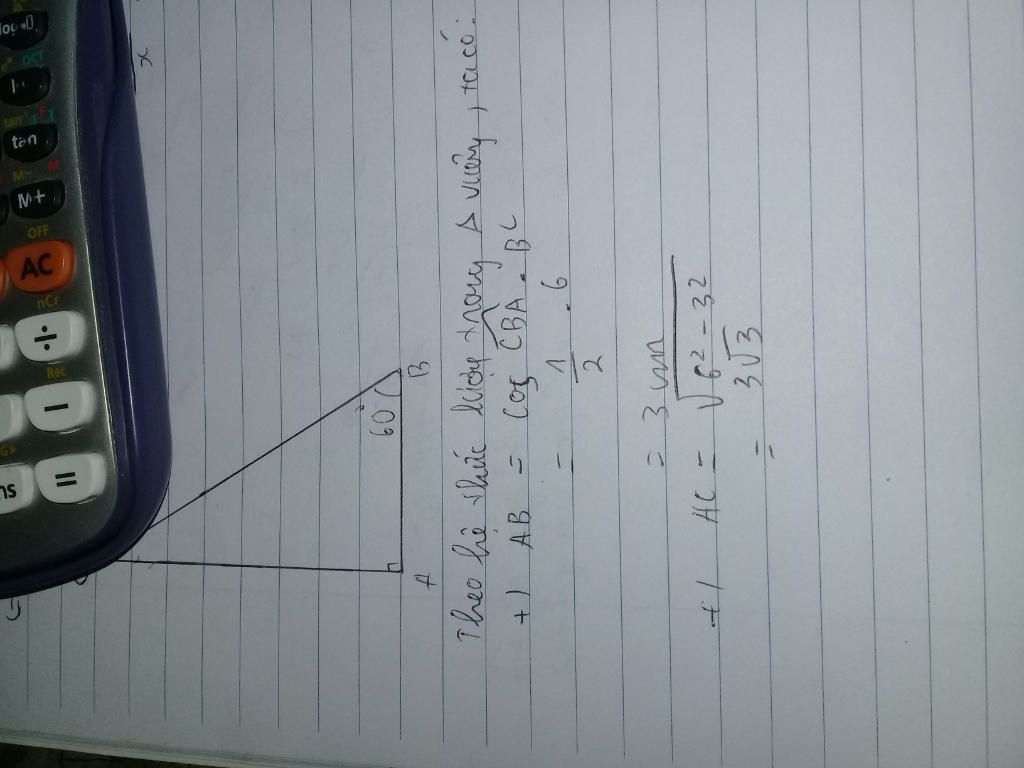 log
OCT
ln
tan⁻¹
tan
M−
M
M+
OFF
AC
nCr
÷
Rec
−
ns
=
x
60°
A
B
Theo hệ thức lượng trong Δ vuông, ta có:
+) AB = cos CBA . BC
= 1/2 . 6
= 3 cm
+) AC = √6² - 3²
= 3√3